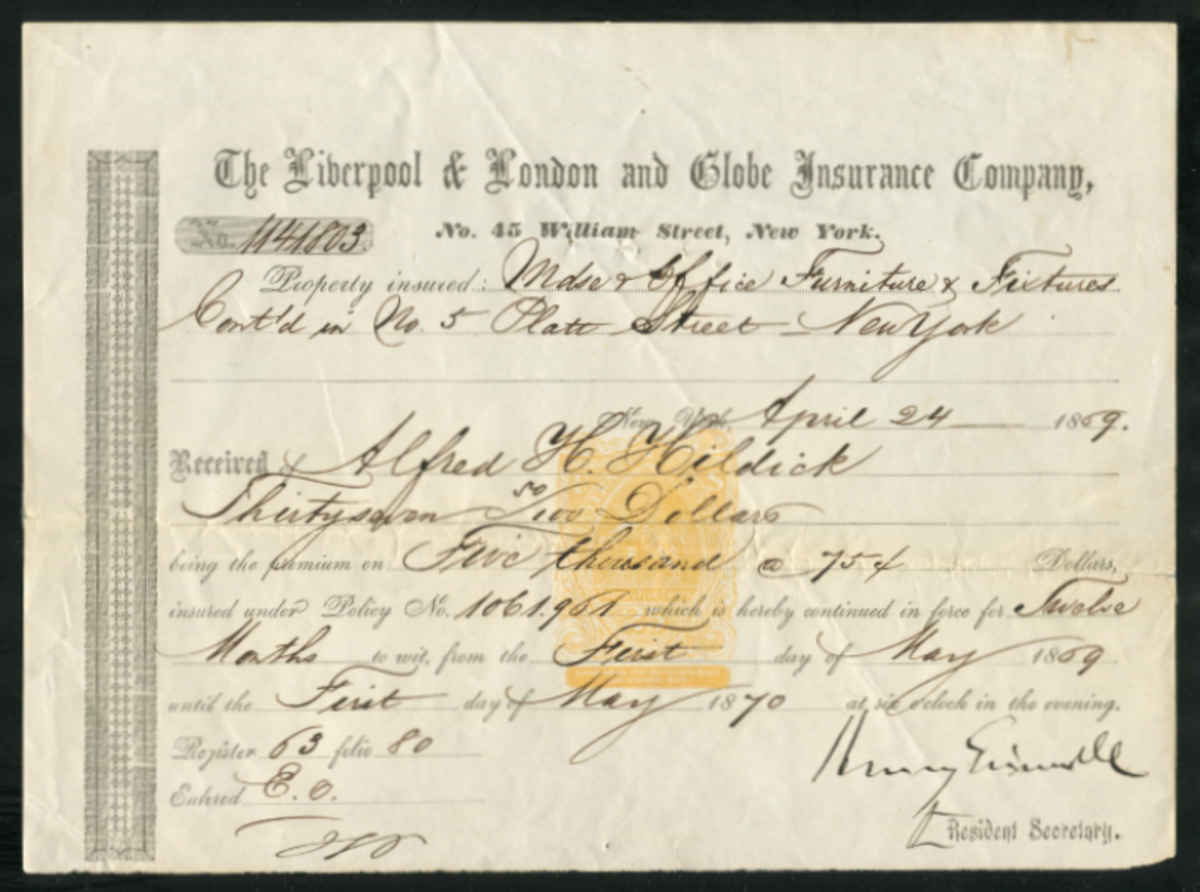 The Liverpool & London and Globe Insurance Company,
No. 1141803 No. 45 William Street, New York.
Property insured: Mdse & Office Furniture & Fixtures
Cont'd in No. 5 Platt Street New York
New York, April 24 1869.
Received of Alfred H. Hildick
Thirtyseven 50/100 Dollars
being the premium on Five thousand @ 75¢ Dollars,
insured under Policy No. 1061.961 which is hereby continued in force for Twelve
Months to wit, from the First day of May 1869
until the First day of May 1870 at six o'clock in the evening.
Register 63 folio 80
Entered E. O.
Resident Secretary.